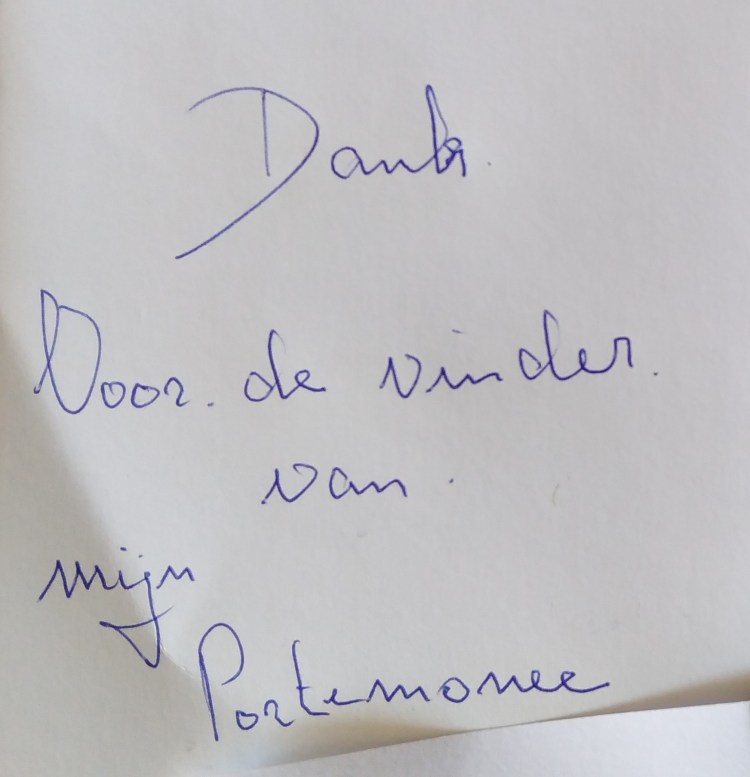 Dank
Voor. de vinder.
van.
mijn
Portemonee